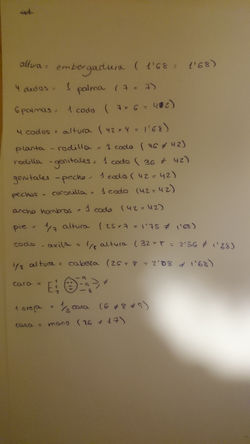 altura = embergadura (1'68 = 1'68)
4 dedos = 1 palma (7 = 7)
6 palmas = 1 codo (7 × 6 = 42)
4 codos = altura (42 × 4 = 1'68)
planta - rodilla = 1 codo (46 ≠ 42)
rodilla - genitales = 1 codo (36 ≠ 42)
genitales - pecho = 1 codo (42 = 42)
pechos - coronilla = 1 codo (42 = 42)
ancho hombros = 1 codo (42 = 42)
pie = 1/7 altura (25 × 7 = 1'75 ≠ 1'68)
codo - axila = 1/8 altura (32 × 8 = 2'56 ≠ 1'68)
1/8 altura = cabeza (26 × 8 = 2'08 ≠ 1'68)
cara =
1 oreja = 1/3 cara (6 ≠ 8 ≠ 9)
cara = mano (16 ≠ 17)